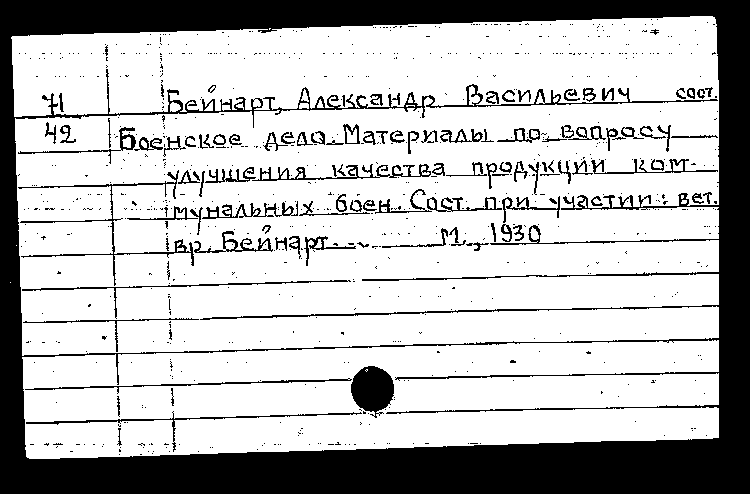 71 Бейнарт, Александр Васильевич сост.
42 Боенское дело. Материалы по вопросу
улучшения качества продукции ком-
мунальных боен. Сост. при участии: вет.
вр. Бейнарт... М., 1930